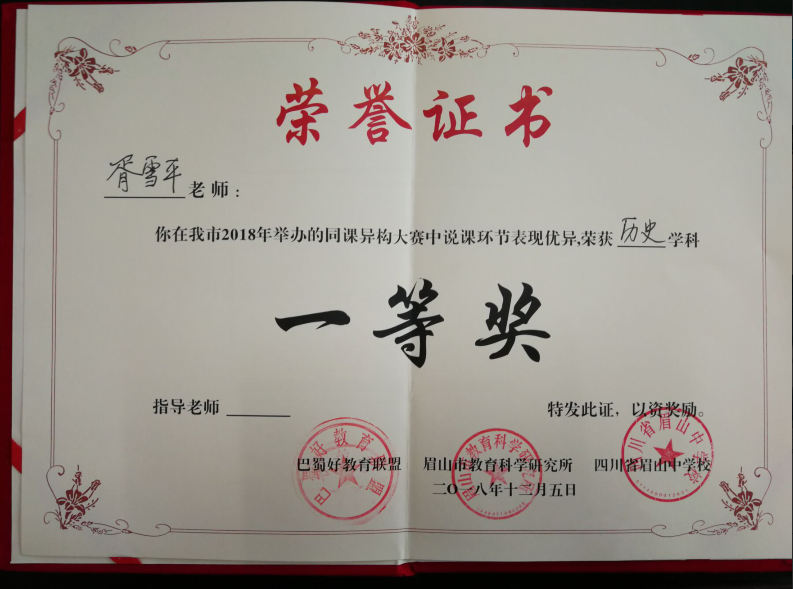 荣誉证书
胥雪平老师:
你在我市2018年举办的同课异构大赛中说课环节表现优异,荣获 历史 学科
一等奖
指导老师
特发此证，以资奖励。
巴蜀好教育联盟 眉山市教育科学研究所 四川省眉山中学校
二〇一八年十二月五日